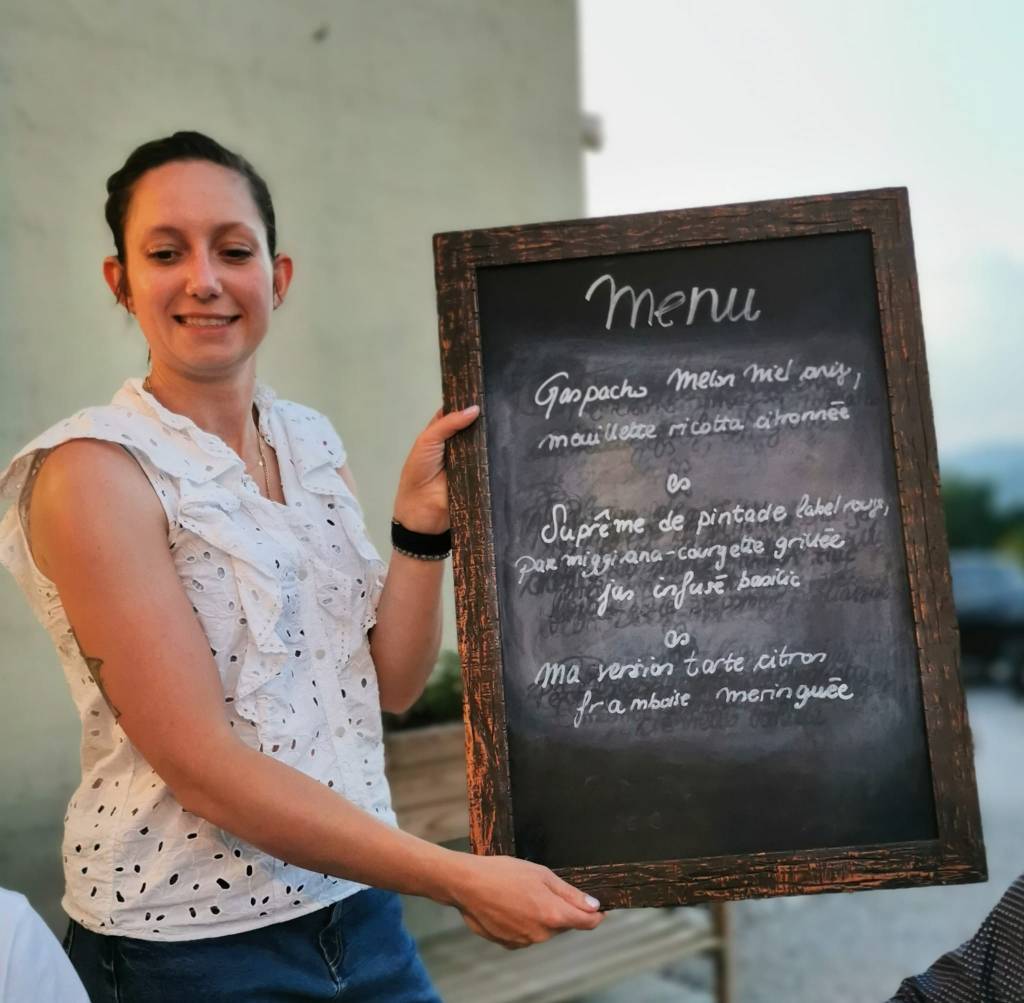 Menu
Gaspacho Melon Miel anis,
mouillette ricotta citronnée
Suprême de pintade label rouge,
parmiggiana-courgette grillée
jus infusé basilic
Ma version tarte citron
framboise meringuée